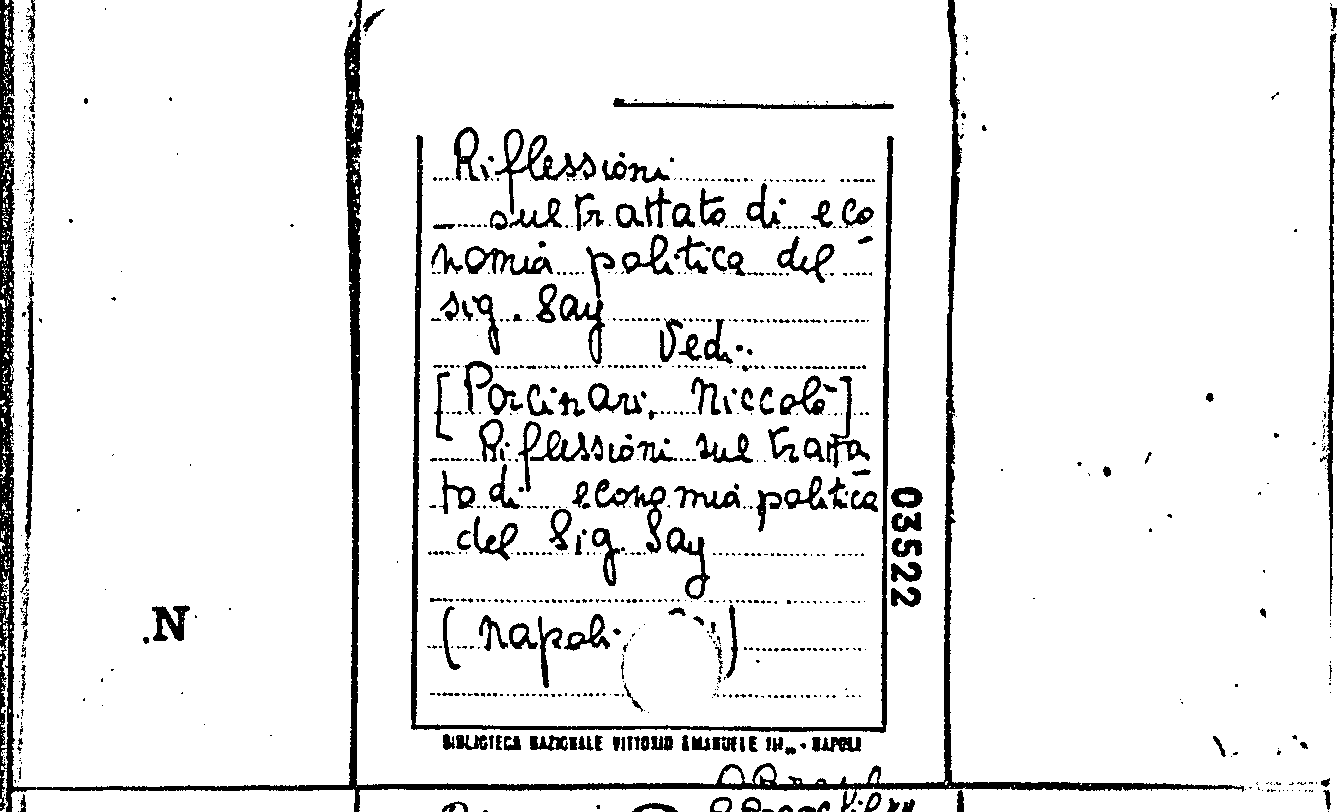 Riflessioni
— sul trattato di eco
nomia politica del
sig. Say
Vedi:
[Porcinari, Niccolò]
Riflessioni sul tratta
to di economia politica
del Sig. Say
(Napoli )
03522
.N
BIBLIOTECA NAZIONALE VITTORIO EMANUELE III - NAPOLI